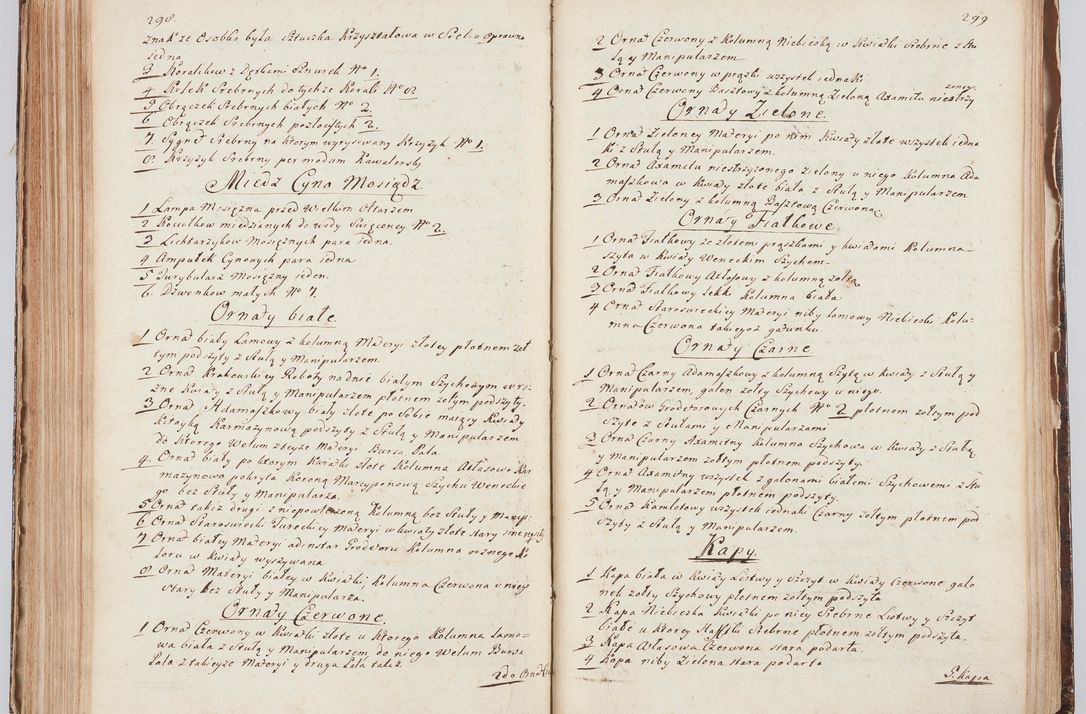 298.
znak ze Osobko była sztuczka Krzyształowa w Srebro oprawna
iedna
3 Koralikow z Perłami Sznurek No 1.
4 Kolek Srebrnych do tychże Korali No 2
5 Obrączek Srebrnych białych No 2.
6 Obrączek Srebrnych pozłocistych 2.
7. Sygnet Srebrny na ktorym wyrysowany Krzyżyk No 1.
8. Krzyżyk Srebrny per modum Kawalerski
Miedz Cyna Mosiądz.
1 Lampa Mosiężna przed Wielkim Ołtarzem
2 Kociołkow miedzianych do wody Swięconey No 2.
3 Lichtarzykow Mosiężnych para iedna.
4 Ampułek Cynowych para iedna
5 Turybularz Mosiężny ieden.
6. Dzwonkow małych No 7.
Ornaty białe.
1 Ornat biały Lamowy z kolumną Materyi złotey płotnem żoł
tym podszyty z Stułą y Manipularzem.
2 Ornat Krakowskiey Roboty na dnie białym Szychowym w ro-
zne Kwiaty z Stułą y Manipularzem płotnem żołtym podszyty.
3 Ornat Adamaszkowy biały złote po Sobie maiący Kwiaty
Kitayką Karmazynową podszyty z Stułą y Manipularzem
do ktorego Welum z teyże Materyi Bursa Pala.
4. Ornat biały po ktorym Kwiatki złote Kolumna Atłasowa Kar
mazynowa pokryta Koroną Marcypanową Szychu Weneckie
go bez Stuły y Manipularza.
5 Ornat takiż drugi z niepowleczoną Kolumną bez Stuły y Manip:
6 Ornat Staroswiecki Tureckiey Materyi w kwiaty złote stary
7 Ornat białey Materyi adinstar Grodetoru Kolumna roznego Ko
loru w Kwiaty wyszywana
8 Ornat Materyi białey w Kwiatki Kolumna Czerwona u niego
Stary bez Stuły y Manipularza.
Ornaty Czerwone.
1 Ornat Czerwony w Kwiatki złote u ktorego Kolumna Lamo-
wa biała z Stułą y Manipularzem, do niego Welum Bursa
Pala z takieyże Materyi y druga Pala także.
2do Ornat
299
2 Ornat Czerwony z Kolumną Niebieską w Kwiatki Srebrne z Stu
łą y Manipularzem
3 Ornat Czerwony w prążki wszystek iednaki
4 Ornat Czerwony Basztowy z kolumną Zieloną Axamitu niestrzy
żoney
Ornaty Zielone.
1 Ornat Zieloney Materyi po nim Kwiaty złote wszystek iedna
ki z Stułą y Manipularzem.
2 Ornat Axamitu niestrzyżonego Zielony u niego Kolumna Ada
maszkowa w Kwiaty złote biała z Stułą y Manipularzem
3 Ornat Zielony z kolumną Basztową Czerwoną
Ornaty Fiałkowe
1 Ornat Fiałkowy ze złotem prążkami y kwiatami Kolumna
szyta w Kwiaty Weneckim Szychem.
2 Ornat Fiałkowy Atłasowy z kolumną żołtą
3 Ornat Fiałkowy lekki Kolumna biała
4 Ornat Staroswieckiey Materyi niby Lamowy Niebieski Kolu-
mna Czerwona takiegoż gatunku.
Ornaty Czarne.
1 Ornat Czarny Adamaszkowy z kolumną Szytą w Kwiaty z Stułą y
Manipularzem, galon żołty Szychowy u niego.
2 Ornatow Grodetorowych Czarnych No 2 płotnem żołtym pod
Szyte z Stułami y Manipularzami
3 Ornat Czarny Axamitny Kolumna Szychowa w Kwiaty z Stułą
y Manipularzem żołtym płotnem podszyty.
4 Ornat Axamitny wszystek z galonami białemi Szychowemi z Stu
łą y Manipularzem płotnem podszyty.
5 Ornat Kamletowy wszystek iednaki Czarny żołtym płotnem pod
szyty z Stułą y Manipularzem.
Kapy.
1 Kapa biała w Kwiaty Listwy y Szczyt w Kwiaty Czerwone galo
nek żołty Szychowy płotnem żołtym podszyta
2 Kapa Niebieska Kwiatki po niey Srebrne Listwy y Szczyt
białe u ktorey Haftki Srebrne płotnem żołtym podszyta.
3 Kapa Atłasowa Czerwona stara podarta.
4 Kapa niby Zielona stara podarta
5. Kapa